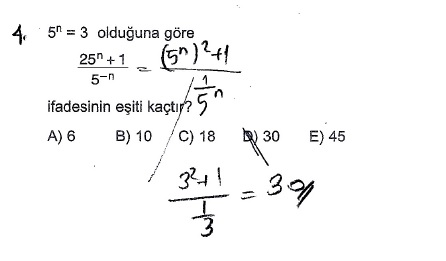 4. 5ⁿ = 3 olduğuna göre
(25ⁿ + 1) / 5⁻ⁿ = ((5ⁿ)² + 1) / (1/5ⁿ)
ifadesinin eşiti kaçtır?
A) 6 B) 10 C) 18 D) 30 E) 45
(3² + 1) / (1/3) = 30